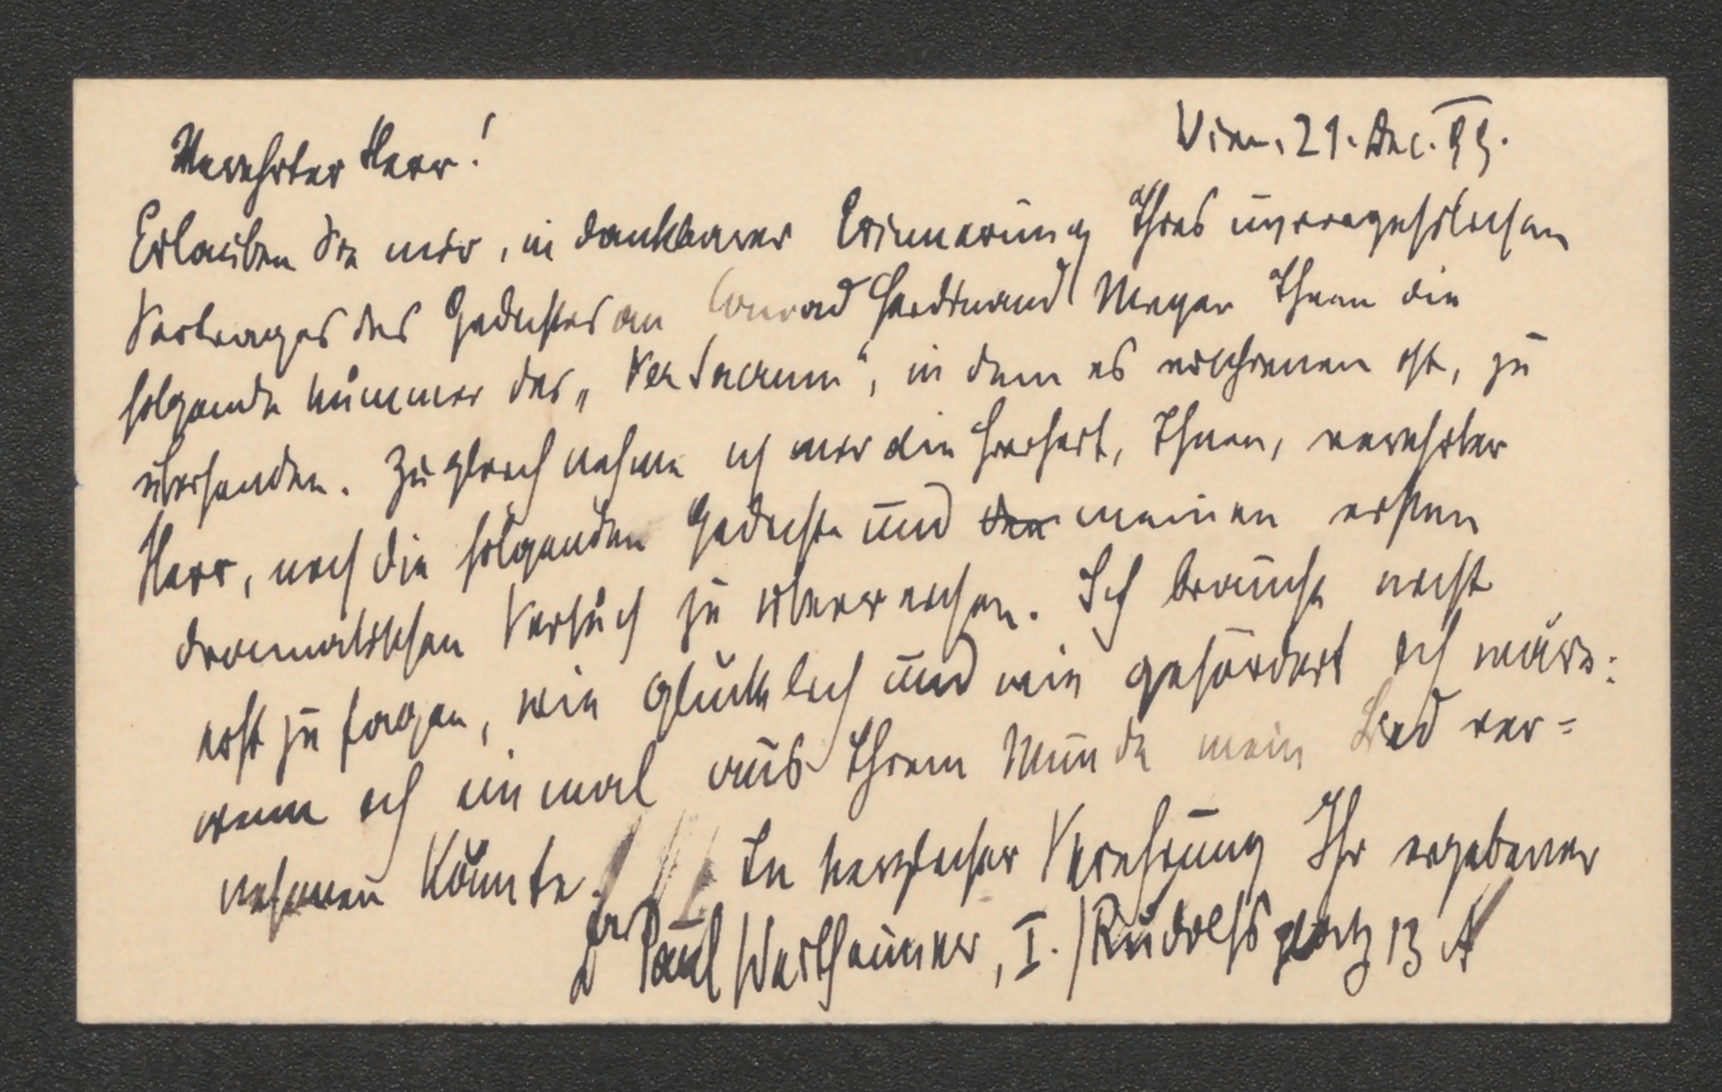 Wien, 21. Dec. 99.
Verehrter Herr!
Erlauben Sie mir, in dankbarer Erinnerung Ihres unvergeßlichen
Vortrages des Gedichtes an Conrad Ferdinand Meyer Ihnen die
folgende Nummer des „Ver Sacrum“, in dem es erschienen ist, zu
übersenden. Zugleich nehme ich mir die Freiheit, Ihnen, verehrter
Herr, noch die folgenden Gedichte und den meinen ersten
dramatischen Versuch zu überreichen. Ich brauche nicht
erst zu sagen, wie glücklich und wie gefördert ich wäre:
wenn ich einmal aus Ihrem Munde mein Lied ver=
nehmen könnte. In herzlicher Verehrung Ihr ergebener
Dr Paul Wertheimer, I. Rudolfsplatz 13 A